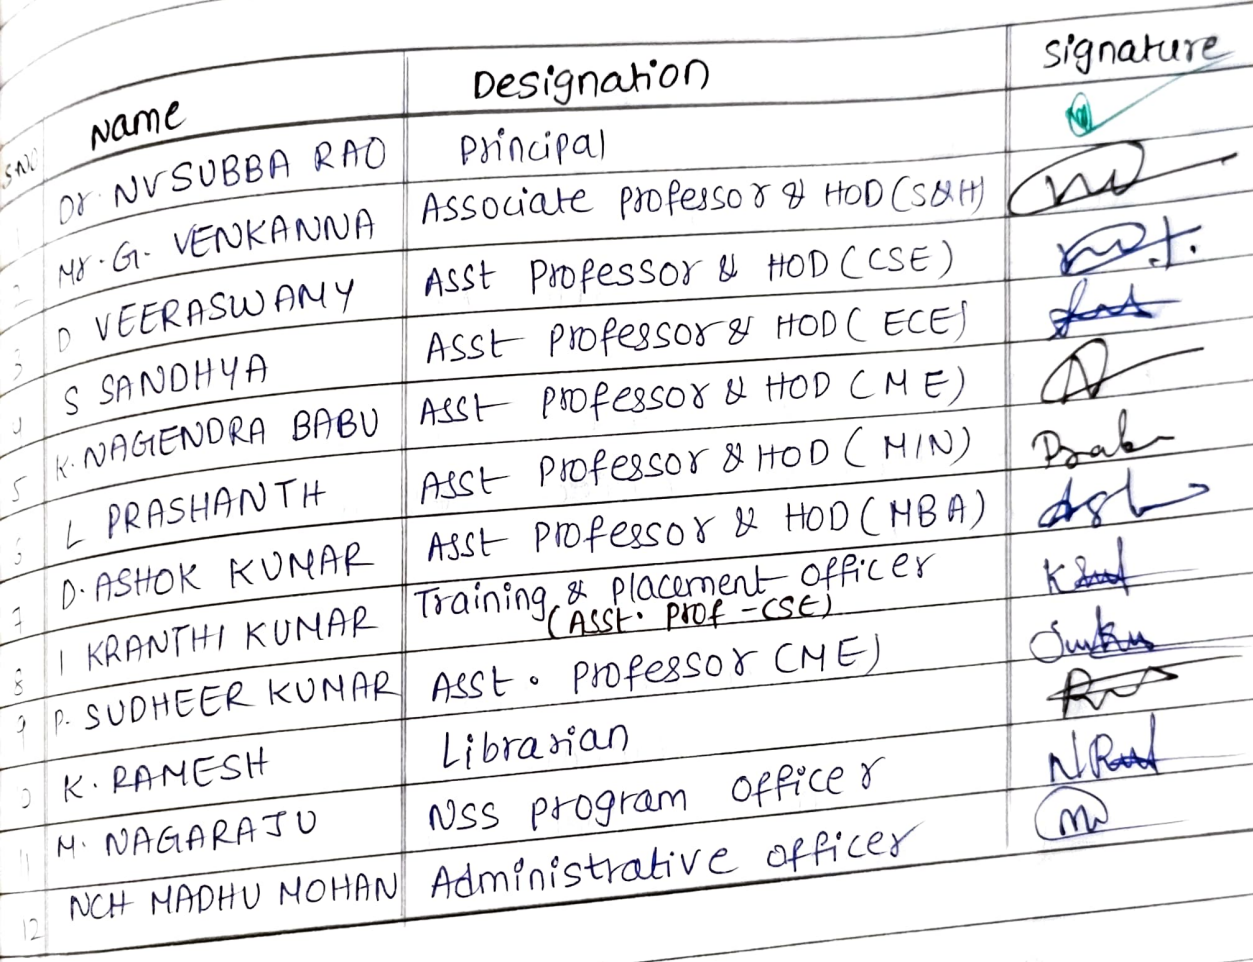 SNO Name Designation Signature
Dr. NV SUBBA RAO Principal
2 Mr. G. VENKANNA Associate professor & HOD (S&H)
3 D VEERASWAMY Asst Professor & HOD (CSE)
4 S SANDHYA Asst Professor & HOD (ECE)
5 K. NAGENDRA BABU Asst Professor & HOD (ME)
6 L PRASHANTH Asst Professor & HOD (MIN)
7 D. ASHOK KUMAR Asst Professor & HOD (MBA)
8 I KRANTHI KUMAR Training & placement officer
(Asst. Prof - CSE)
9 P. SUDHEER KUMAR Asst. Professor (ME)
K. RAMESH Librarian
11 M. NAGARAJU NSS program officer
12 NCH MADHU MOHAN Administrative officer